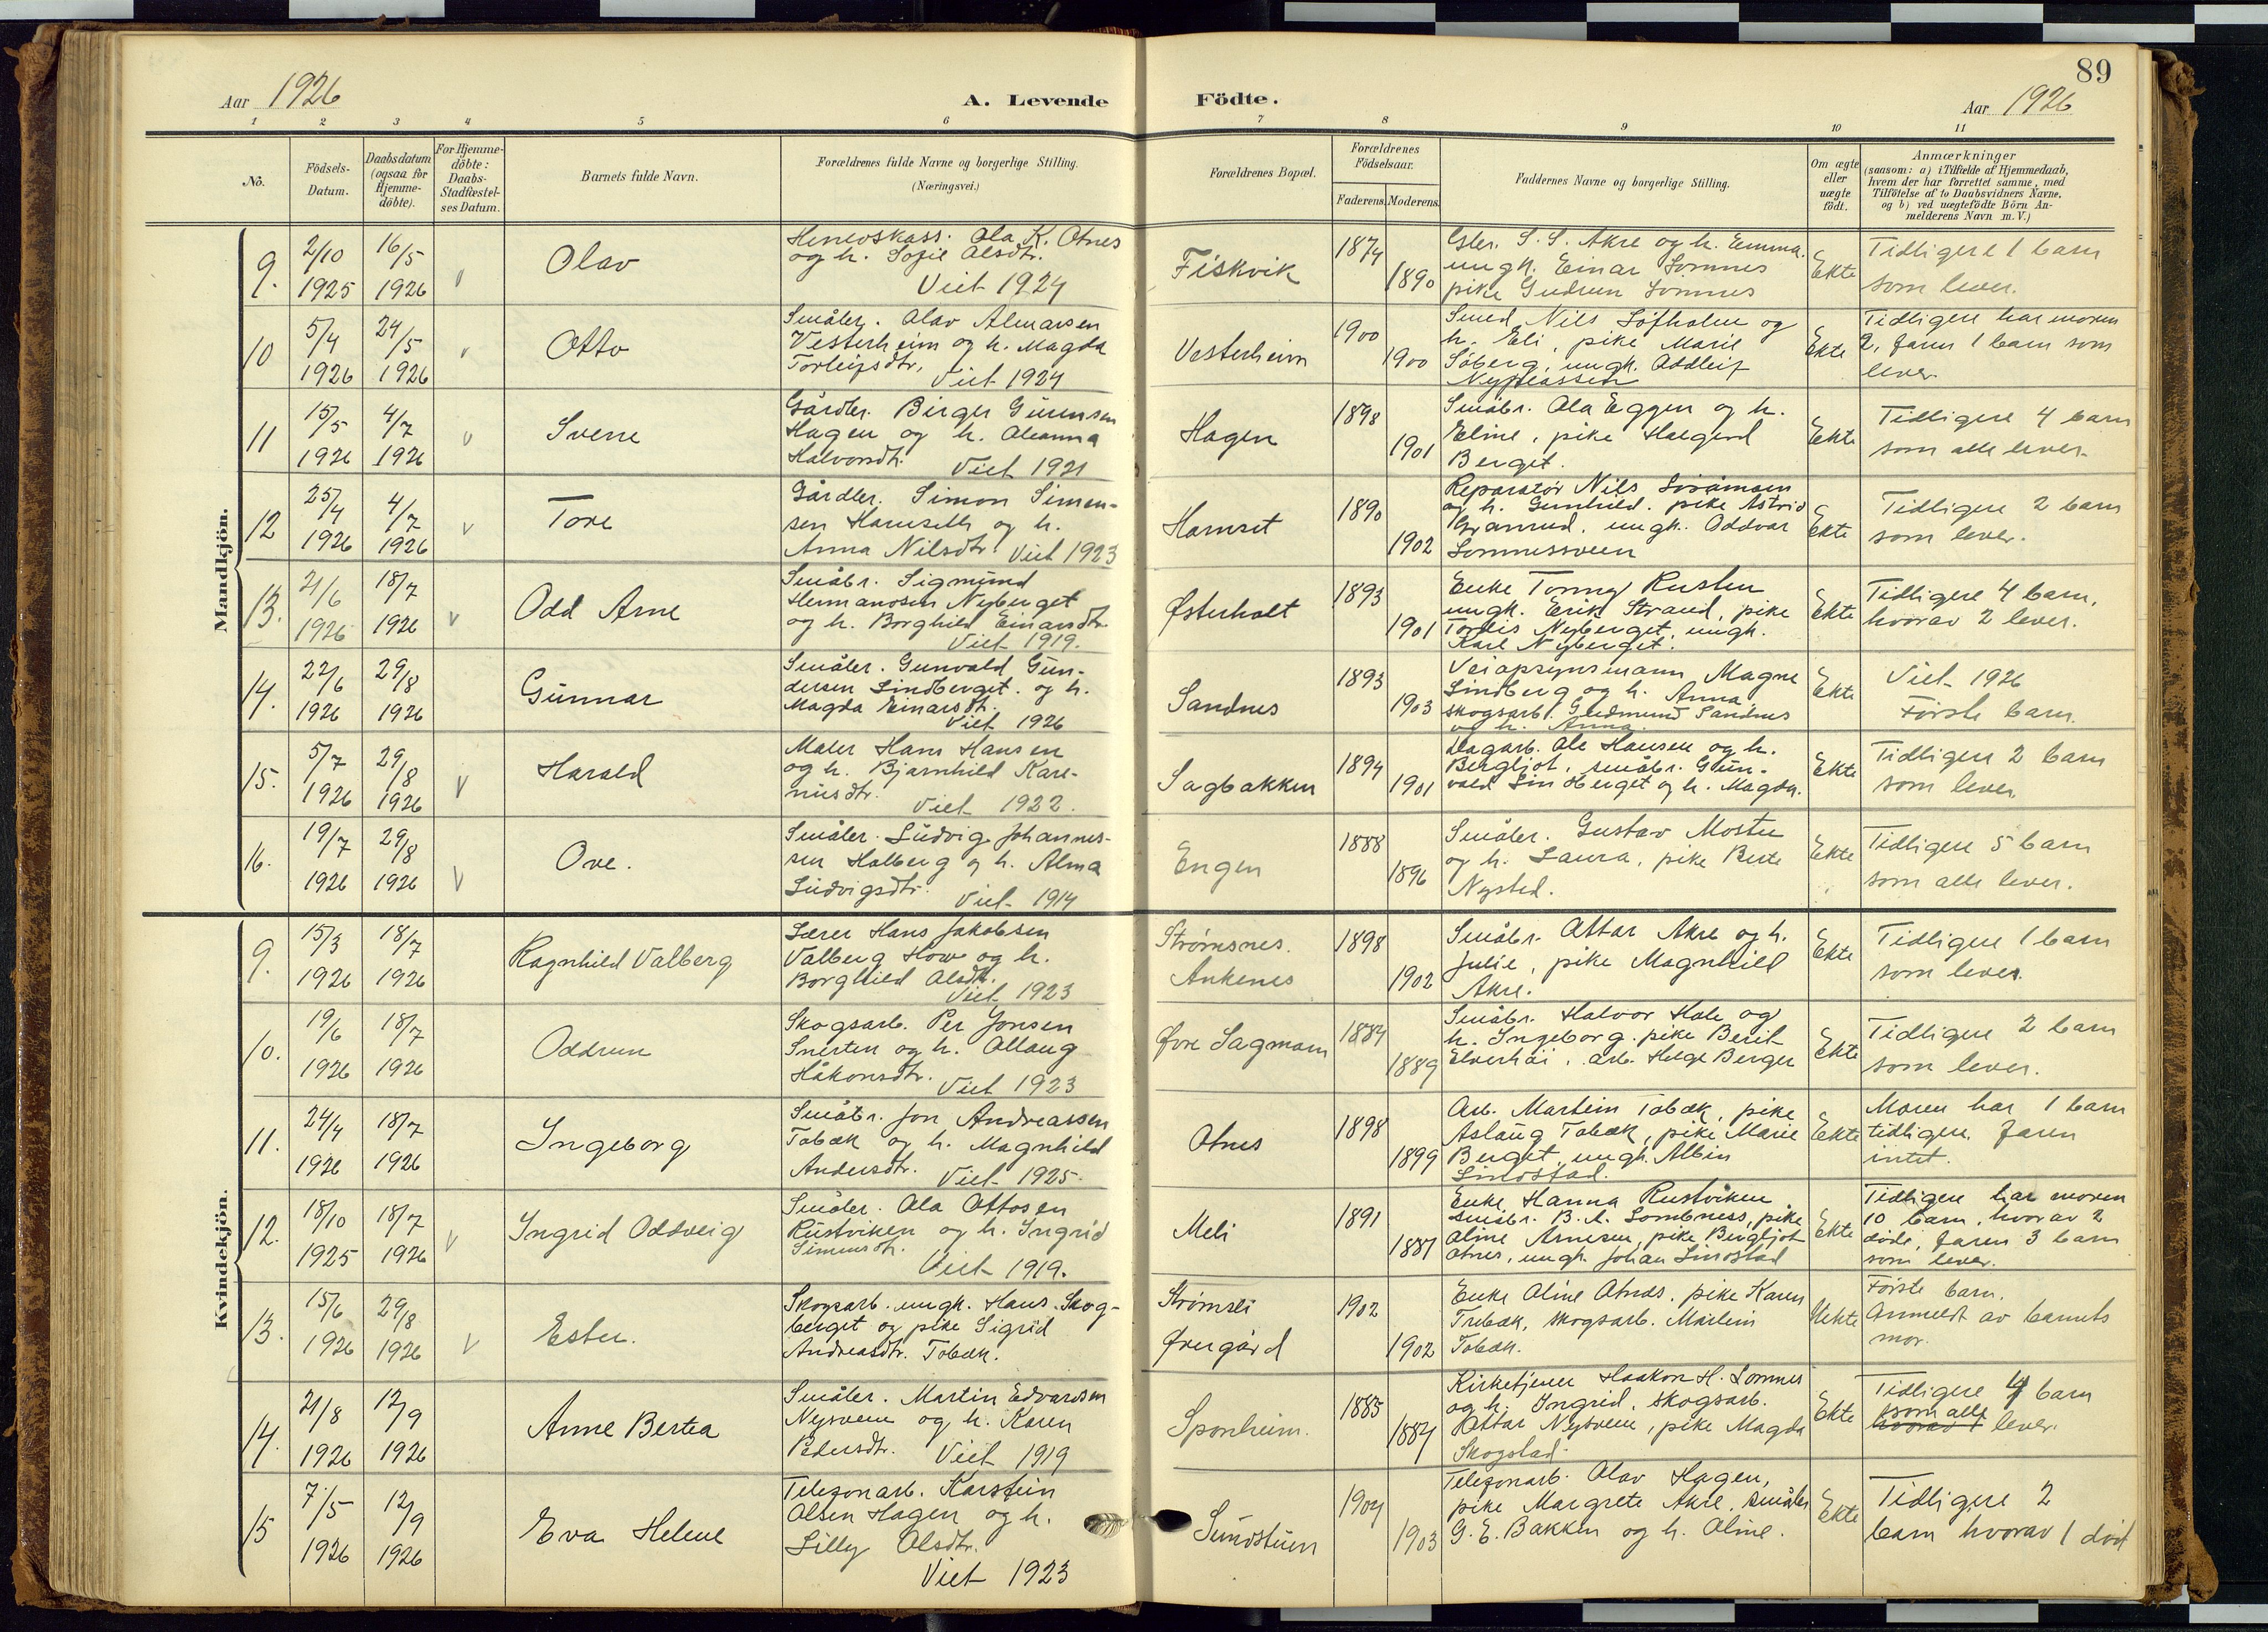 89
Aar 1926
A. Levende
Födte.
Aar 1926
1 2 3 4 5 6 7 8 9 10 11
No.
Födsels-
Datum.
Daabsdatum
(ogsaa for
Hjemme-
döbte).
For Hjemme-
döbte:
Daabs-
Stadfæstel-
ses Datum.
Barnets fulde Navn.
Forældrenes fulde Navne og borgerlige Stilling.
(Næringsvei.)
Forældrenes Bopæl.
Forældrenes
Födselsaar.
Faderens.
Moderens.
Faddernes Navne og borgerlige Stilling.
Om ægte
eller
uægte
födt.
Anmærkninger
(saasom: a) i Tilfælde af Hjemmedaab,
hvem der har forrettet samme, med
Tilföielse af to Daabsvidners Navne.
og b) ved uægtefödte Börn An-
melderens Navn m. V.)
Mandkjön.
9.
2/10
1925
16/5
1926
Olav
Ola K. Otnes
og h. Sofie Olsdtr.
Viet 1924
Fiskvik
1874
1890
S. S. Akre og h. Emma.
ungk. Einar Lomnes
pike Gudrun Lomnes
Ekte
Tidligere 1 barn
som lever.
10
5/4
1926
24/5
1926
v
Otto
Småbr. Olav Almarsen
Vesterheim og h. Magda
Torleifsdtr.
Viet 1924
Vesterheim
1900
1900
Smed Nils Löfholm og
h. Eli, pike Marie
Söberg, ungk. Oddleif
Ekte
Tidligere har moren
2, faren 1 barn som
lever.
11
15/5
1926
4/7
1926
v
Sverre
Gårdbr. Birger Gunnsen
Hagen og h. Oleanna
Halvorsdtr.
Viet 1921
Hagen
1898
1901
Småbr. Ola Eggen og h.
Eline, pike Halgerd
Berget.
Ekte
Tidligere 4 barn
som alle lever.
12
25/4
1926
4/7
1926
v
Tore
Gårdbr. Simon Simen-
sen Harnseth og h.
Anna Nilsdtr. Viet 1923
Harnset
1890
1902
Reparatör Nils
og h. Gunhild. pike Astrid
Granrud, ungk. Oddvar
Lomnessveen
Ekte
Tidligere 2 barn
som lever.
13.
21/6
1926
18/7
1926
v
Odd Arne
Småbr. Sigmund
Hermansen Nyberget
og h. Borghild Einarsdtr.
Viet 1919.
Østerholt
1893
1901
Enke Tonny Rusten
ungk. Erik Strand, pike
Tordis Nyberget, ungk.
Karl Nyberget.
Ekte
Tidligere 4 barn,
hvorav 2 lever.
14.
22/6
1926
29/8
1926
Gunnar
Småbr. Gunvald Gun-
dersen Lindberget. og h.
Magda Einarsdtr.
Viet 1926
Sandnes
1893
1903
Veiopsynsmann Magne
Lindberg og h. Anna
skogsarb. Gudmund Sandnes
og h. Anna.
Ekte
Viet 1926
Förste barn.
15.
5/7
1926
29/8
1926
v
Harald
Maler Hans Hansen
og h. Bjarnhild Kare-
niusdtr.
Viet 1922.
Sagbakken
1894
1901
Dagarb. Ole Hansen og h.
Bergljot, småbr. Gun-
vald Lindberget og h. Magda.
Ekte
Tidligere 2 barn
som lever.
16.
19/7
1926
29/8
1926
v
Ove.
Småbr. Ludvig Johannes-
sen Holberg og h. Alma
Ludvigsdtr.
Viet 1914
Engen
1888
1896
Småbr. Gustav Mostu
og h. Laura, pike Berte
Nysted.
Ekte
Tidligere 5 barn
som alle lever.
Kvindekjön.
9.
15/3
1926
18/7
1926
Ragnhild Valberg
Lærer Hans Jakobsen
Valberg How og h.
Borghild Olsdtr.
Viet 1923
Strømsnes.
Ankenes
1898
1902
Småbr. Ottar Akre og h.
Julie, pike Magnhild
Akre.
Ekte
Tidligere 1 barn
som lever.
10.
19/6
1926
18/7
1926
Oddrun
Skogsarb. Per Jonsen
Snerten og h. Ollaug
Håkonsdtr.
Viet 1923
Øvre Sagmoen
1884
1889
Småbr. Halvor Hole og
h. Ingeborg. pike Berit
Elverhöi, arb. Helge Berger
Ekte
Tidligere 2 barn
som lever.
11.
24/4
1926
18/7
1926
Ingeborg
Småbr. Jon Andreassen
Tobæk og h. Magnhild
Andersdtr.
Viet 1925.
Otnes
1898
1899
Arb. Martein Tobæk, pike
Aslaug Tobæk, pike Marie
Berget, ungk. Albin
Lindstad.
Ekte
Moren har 1 barn
tidligere, faren
intet.
12.
18/10
1925
18/7
1926
v
Ingrid Oddveig
Småbr. Ola Ottosen
Rustviken og h. Ingrid
Simensdtr.
Viet 1919.
Meli
1891
1887
Enke Hanna Rustviken
småbr. B. A. Lombness, pike
Oline Arnesen, pike Bergljot
Otnes, ungk. Johan Lindstad
Ekte
Tidligere har moren
10 barn, hvorav 2
døde, faren 3 barn
som lever.
13.
15/6
1926
29/8
1926
v
Ester.
Skogsarb. ungk. Hans Skog-
berget og pike Sigrid
Andreasdtr. Tobæk.
Strømsli
Øvergård
1902
1902
Enke Oline Otnes, pike Karen
Trebæk, skogsarb. Martein
Tobæk.
Uekte
Förste barn.
Anmeldt av barnets
mor.
14.
21/8
1926
12/9
1926
Anne Bertea
Småbr. Martin Edvardsen
Nysveen og h. Karen
Pedersdtr.
Viet 1919
Sponheim.
1885
1884
Kirketjener Haakon H. Lomnes
og h. Ingrid, skogsarb.
Ottar Nysveen, pike Magda
Skogstad.
Ekte
Tidligere 4 barn
som alle
lever.
15
7/5
1926
12/9
1926
Eva Helene
Telefonarb. Karstein
Olsen Hagen og h.
Lilly Olsdtr.
Viet 1923
Sundstuen
1904
1903
Telefonarb. Olav Hagen,
pike Margrete Akre, småbr
G. E. Bakken og h. Oline.
Ekte
Tidligere 2
barn hvorav 1 död